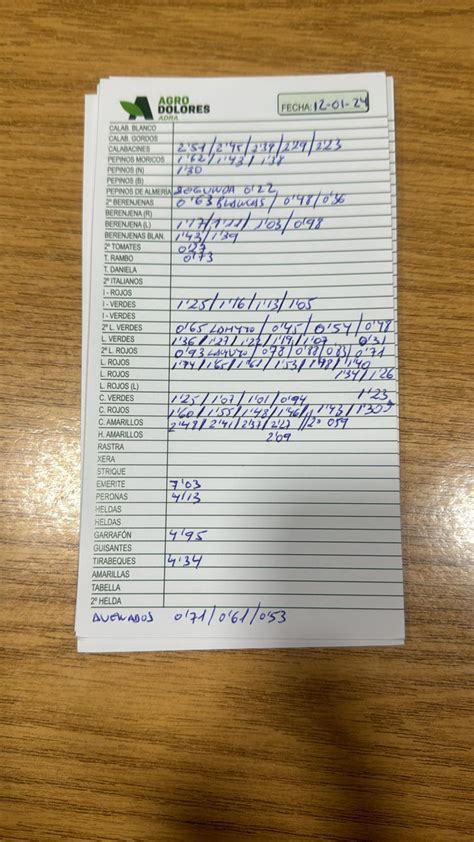 AGRO
DOLORES
ADRA
FECHA: 12-01-24
CALAB. BLANCO
CALAB. GORDOS
CALABACINES 2'51 / 2'45 / 2'39 / 2'29 / 2'23
PEPINOS MORICOS 1'62 / 1'43 / 1'38
PEPINOS (N) 1'30
PEPINOS (B)
PEPINOS DE ALMERÍA SEGUNDA 0'22
2ª BERENJENAS 0'63 BLANCAS / 0'48 / 0'36
BERENJENA (R)
BERENJENA (L) 1'17 / 1'11 / 1'03 / 0'98
BERENJENAS BLAN. 1'43 / 1'39
2º TOMATES
T. RAMBO 0'73
T. DANIELA
2º ITALIANOS
I - ROJOS
I - VERDES 1'25 / 1'16 / 1'13 / 1'05
I - VERDES
2º L. VERDES 0'65 LAMUYO / 0'45 / 0'54 / 0'48
L. VERDES 1'36 / 1'27 / 1'22 / 1'19 / 1'07 0'31
2º L. ROJOS 0'93 LAMUYO / 0'78 / 0'88 / 0'83 / 0'71
L. ROJOS 1'74 / 1'65 / 1'61 / 1'53 / 1'48 / 1'40
L. ROJOS 1'34 / 1'26
L. ROJOS (L)
C. VERDES 1'25 / 1'07 / 1'01 / 0'94 1'23
C. ROJOS 1'60 / 1'55 / 1'48 / 1'46 / 1'43 / 1'30
C. AMARILLOS 2'48 / 2'41 / 2'37 / 2'27 // 2º 059
H. AMARILLOS 2'09
RASTRA
XERA
STRIQUE
EMERITE 7'03
PERONAS 4'13
HELDAS
HELDAS
GARRAFÓN 4'95
GUISANTES
TIRABEQUES 4'34
AMARILLAS
TABELLA
2ª HELDA
0'71 / 0'61 / 0'53